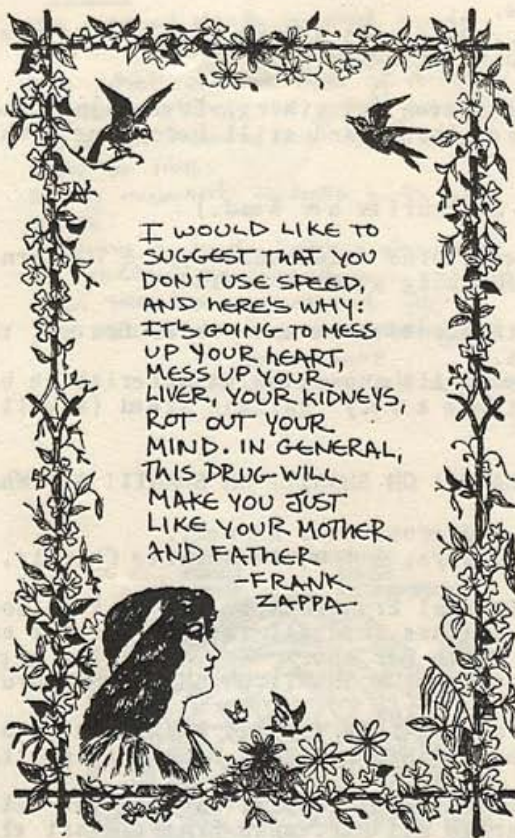 I WOULD LIKE TO
SUGGEST THAT YOU
DON'T USE SPEED,
AND HERE'S WHY:
IT'S GOING TO MESS
UP YOUR HEART,
MESS UP YOUR
LIVER, YOUR KIDNEYS,
ROT OUT YOUR
MIND. IN GENERAL,
THIS DRUG WILL
MAKE YOU JUST
LIKE YOUR MOTHER
AND FATHER
-FRANK
ZAPPA-